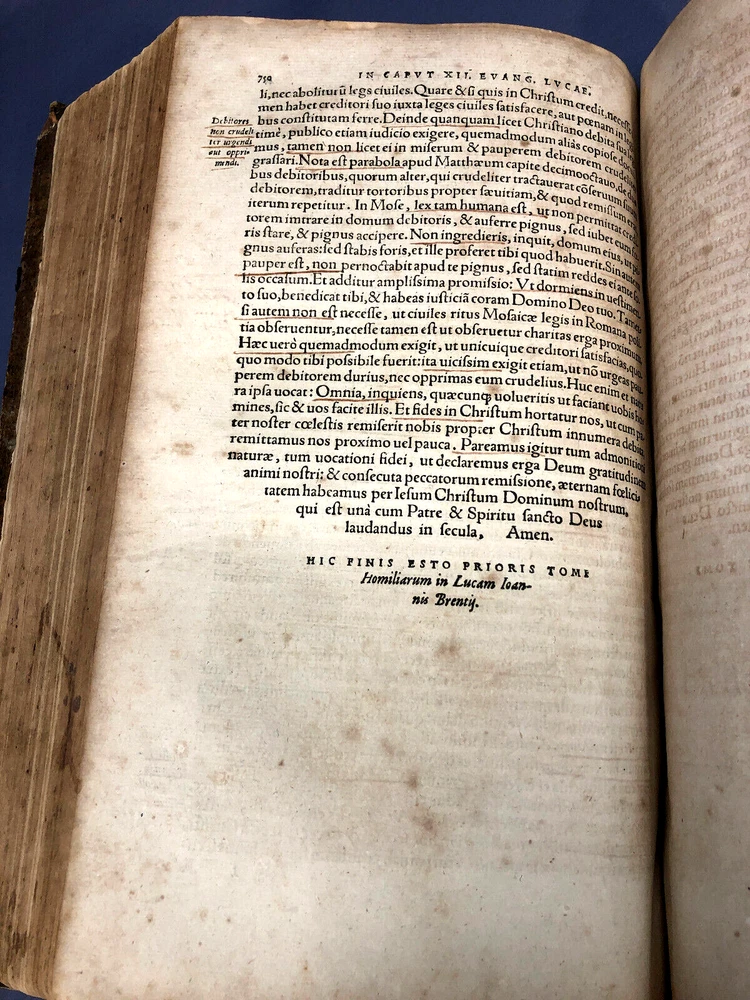 750 IN CAPVT XII. EVANG. LVCAE.
li, nec abolitur ũ legs ciuiles. Quare & si quis in Christum credit,
men habet creditori suo iuxta leges ciuiles satisfacere, aut pœnam in
bus constitutam ferre. Deinde quanquam licet Christiano debita sua
timè, publico etiam iudicio exigere, quemadmodum aliàs copiose
mus, tamen non licet ei in miserum & pauperem debitorem
grassari. Nota est parabola apud Matthæum capite decimooctauo, de
bus debitoribus, quorum alter, qui crudeliter tractauerat cõseruum
debitorem, traditur tortoribus propter sæuitiam, & quod remissum
iterum repetitur. In Mose, lex tam humana est, ut non permittat
torem intrare in domum debitoris, & auferre pignus, sed iubet eum
ris stare, & pignus accipere. Non ingredieris, inquit, domum eius, ut
gnus auferas: sed stabis foris, et ille proferet tibi quod habuerit. Sin
pauper est, non pernoctabit apud te pignus, sed statim reddes ei ante
lis occasum. Et additur amplissima promissio: Vt dormiens in
to suo, benedicat tibi, & habeas iusticiã coram Domino Deo tuo.
si autem non est necesse, ut ciuiles ritus Mosaicæ legis in Romana
tia obseruentur, necesse tamen est ut obseruetur charitas erga proximum
Hæc uerò quemadmodum exigit, ut unicuique creditori satisfacias,
quo modo tibi possibile fuerit: ita uicissim exigit etiam, ut nõ urgeas
perem debitorem durius, nec opprimas eum crudelius. Huc enim et
ra ipsa uocat: Omnia, inquiens, quæcunq; uolueritis ut faciant uobis
mines, sic & uos facite illis. Et fides in Christum hortatur nos, ut cum
ter noster cœlestis remiserit nobis propter Christum innumera debita
remittamus nos proximo uel pauca. Pareamus igitur tum admonitioni
naturæ, tum uocationi fidei, ut declaremus erga Deum gratitudinem
animi nostri: & consecuta peccatorum remissione, æternam fœlici
tatem habeamus per Iesum Christum Dominum nostrum,
qui est unà cum Patre & Spiritu sancto Deus
laudandus in secula, Amen.
HIC FINIS ESTO PRIORIS TOMI
Homiliarum in Lucam Ioan-
nis Brentij.
Debitores
non crudeli
ter urgendi
aut oppri-
mendi.